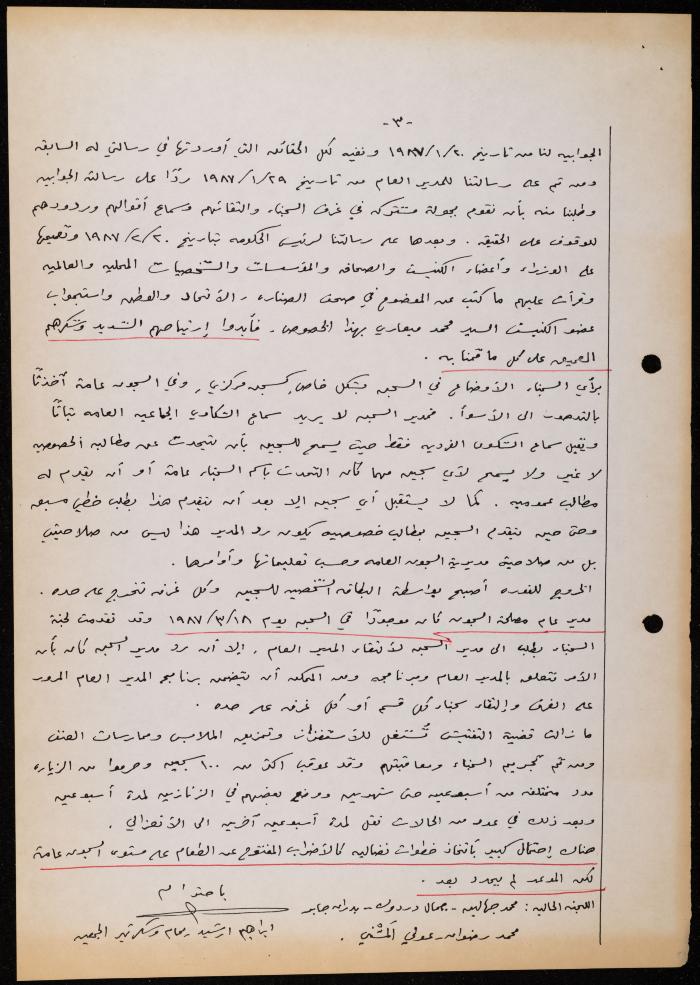 -٣-
الجوابيه لنا من تاريخ ١٩٨٧/١/٢٠ ونفيه لكل الحقائق التي أوردتها في رسالتي له السابقة
ومن ثم على رسالتنا للمدير العام من تاريخ ١٩٨٧/١/٢٩ ردًا على رسالته الجوابيه
وطلبنا منه بأن نقوم بجولة مشتركه في غرف السجناء والتقائهم وسماع أقوالهم وردودهم
للوقوف على الحقيقه . وبعدها على رسالتنا لرئيس الحكومه بتاريخ ١٩٨٧/٢/٢٠ وتعميمها
على الوزراء وأعضاء الكنيست والصحافه والمؤسسات والشخصيات المحليه والعالميه
وقرأت عليهم ما كتب عن الموضوع في صحف الصناره ، الأتحاد والوطن واستجواب
عضو الكنيست السيد محمد ميعاري بهذا الخصوص . فأبدوا إرتياحهم الشديد وشكرهم
العميق على كل ما قمنا به .
برأي السجناء الأوضاع في السجن بشكل خاص كسجن مركزي ، وفي السجون عامة آخذتًا
بالتدهور الى الأسوأ . فمدير السجن لا يريد سماع الشكاوي الجماعيه العامه بتاتًا
ويقبل سماع الشكوى الفرديه فقط حيث يسمح للسجين بأن يتحدث عن مطالبه الخصوصيه
لا غير ولا يسمح لأي سجين مهما كان التحدث باسم السجناء عامة أو أن يقدم له
مطالب عموميه . كما لا يستقبل أي سجين إلا بعد أن يتقدم هذا بطلب خطي مسبق
وحتى حين يتقدم السجين بمطالب خصوصيه يكون رد المدير هذا ليس من صلاحيتي
بل من صلاحية مديرية السجون العامه وحسب تعليماتها وأوامرها .
الخروج للفوره أصبح بواسطة البطاقه الشخصيه للسجين وكل غرفه تخرج على حده .
مدير عام مصلحة السجون كان موجودًا في السجن يوم ١٩٨٧/٣/١٨ وقد تقدمت لجنة
السجناء بطلب الى مدير السجن لألتقاء المدير العام . إلا أن رد مدير السجن كان بأن
الأمر متعلق بالمدير العام وبرنامجه ومن الممكن أن يتضمن برنامج المدير العام المرور
على الغرف والتقاء سجناء كل قسم أو كل غرفه على حده .
ما زالت قضية التفتيش تُستغل للأستفزاز وتمزيق الملابس وممارسات العنف
ومن ثم تجريم السجناء ومعاقبتهم وقد عوقب اكثر من ١٠٠ سجين وحرموا من الزياره
مدد مختلفه من أسبوعين حتى شهرين ووضع بعضهم في الزنازين لمدة أسبوعين
وبعد ذلك في عدد من الحالات نقل لمدة أسبوعين آخرين الى الأنعزالي .
هناك إحتمال كبير باتخاذ خطوات نضاليه كالأضراب المفتوح عن الطعام على مستوى السجون عامة
لكن الموعد لم يحدد بعد .
باحترام
اللجنه الحاليه : محمد جهالين - جمال دردوك - بدران جابر
محمد رضوان - عوني المشني .
ابراهيم ارشيد محام وسكرتير الجمعيه